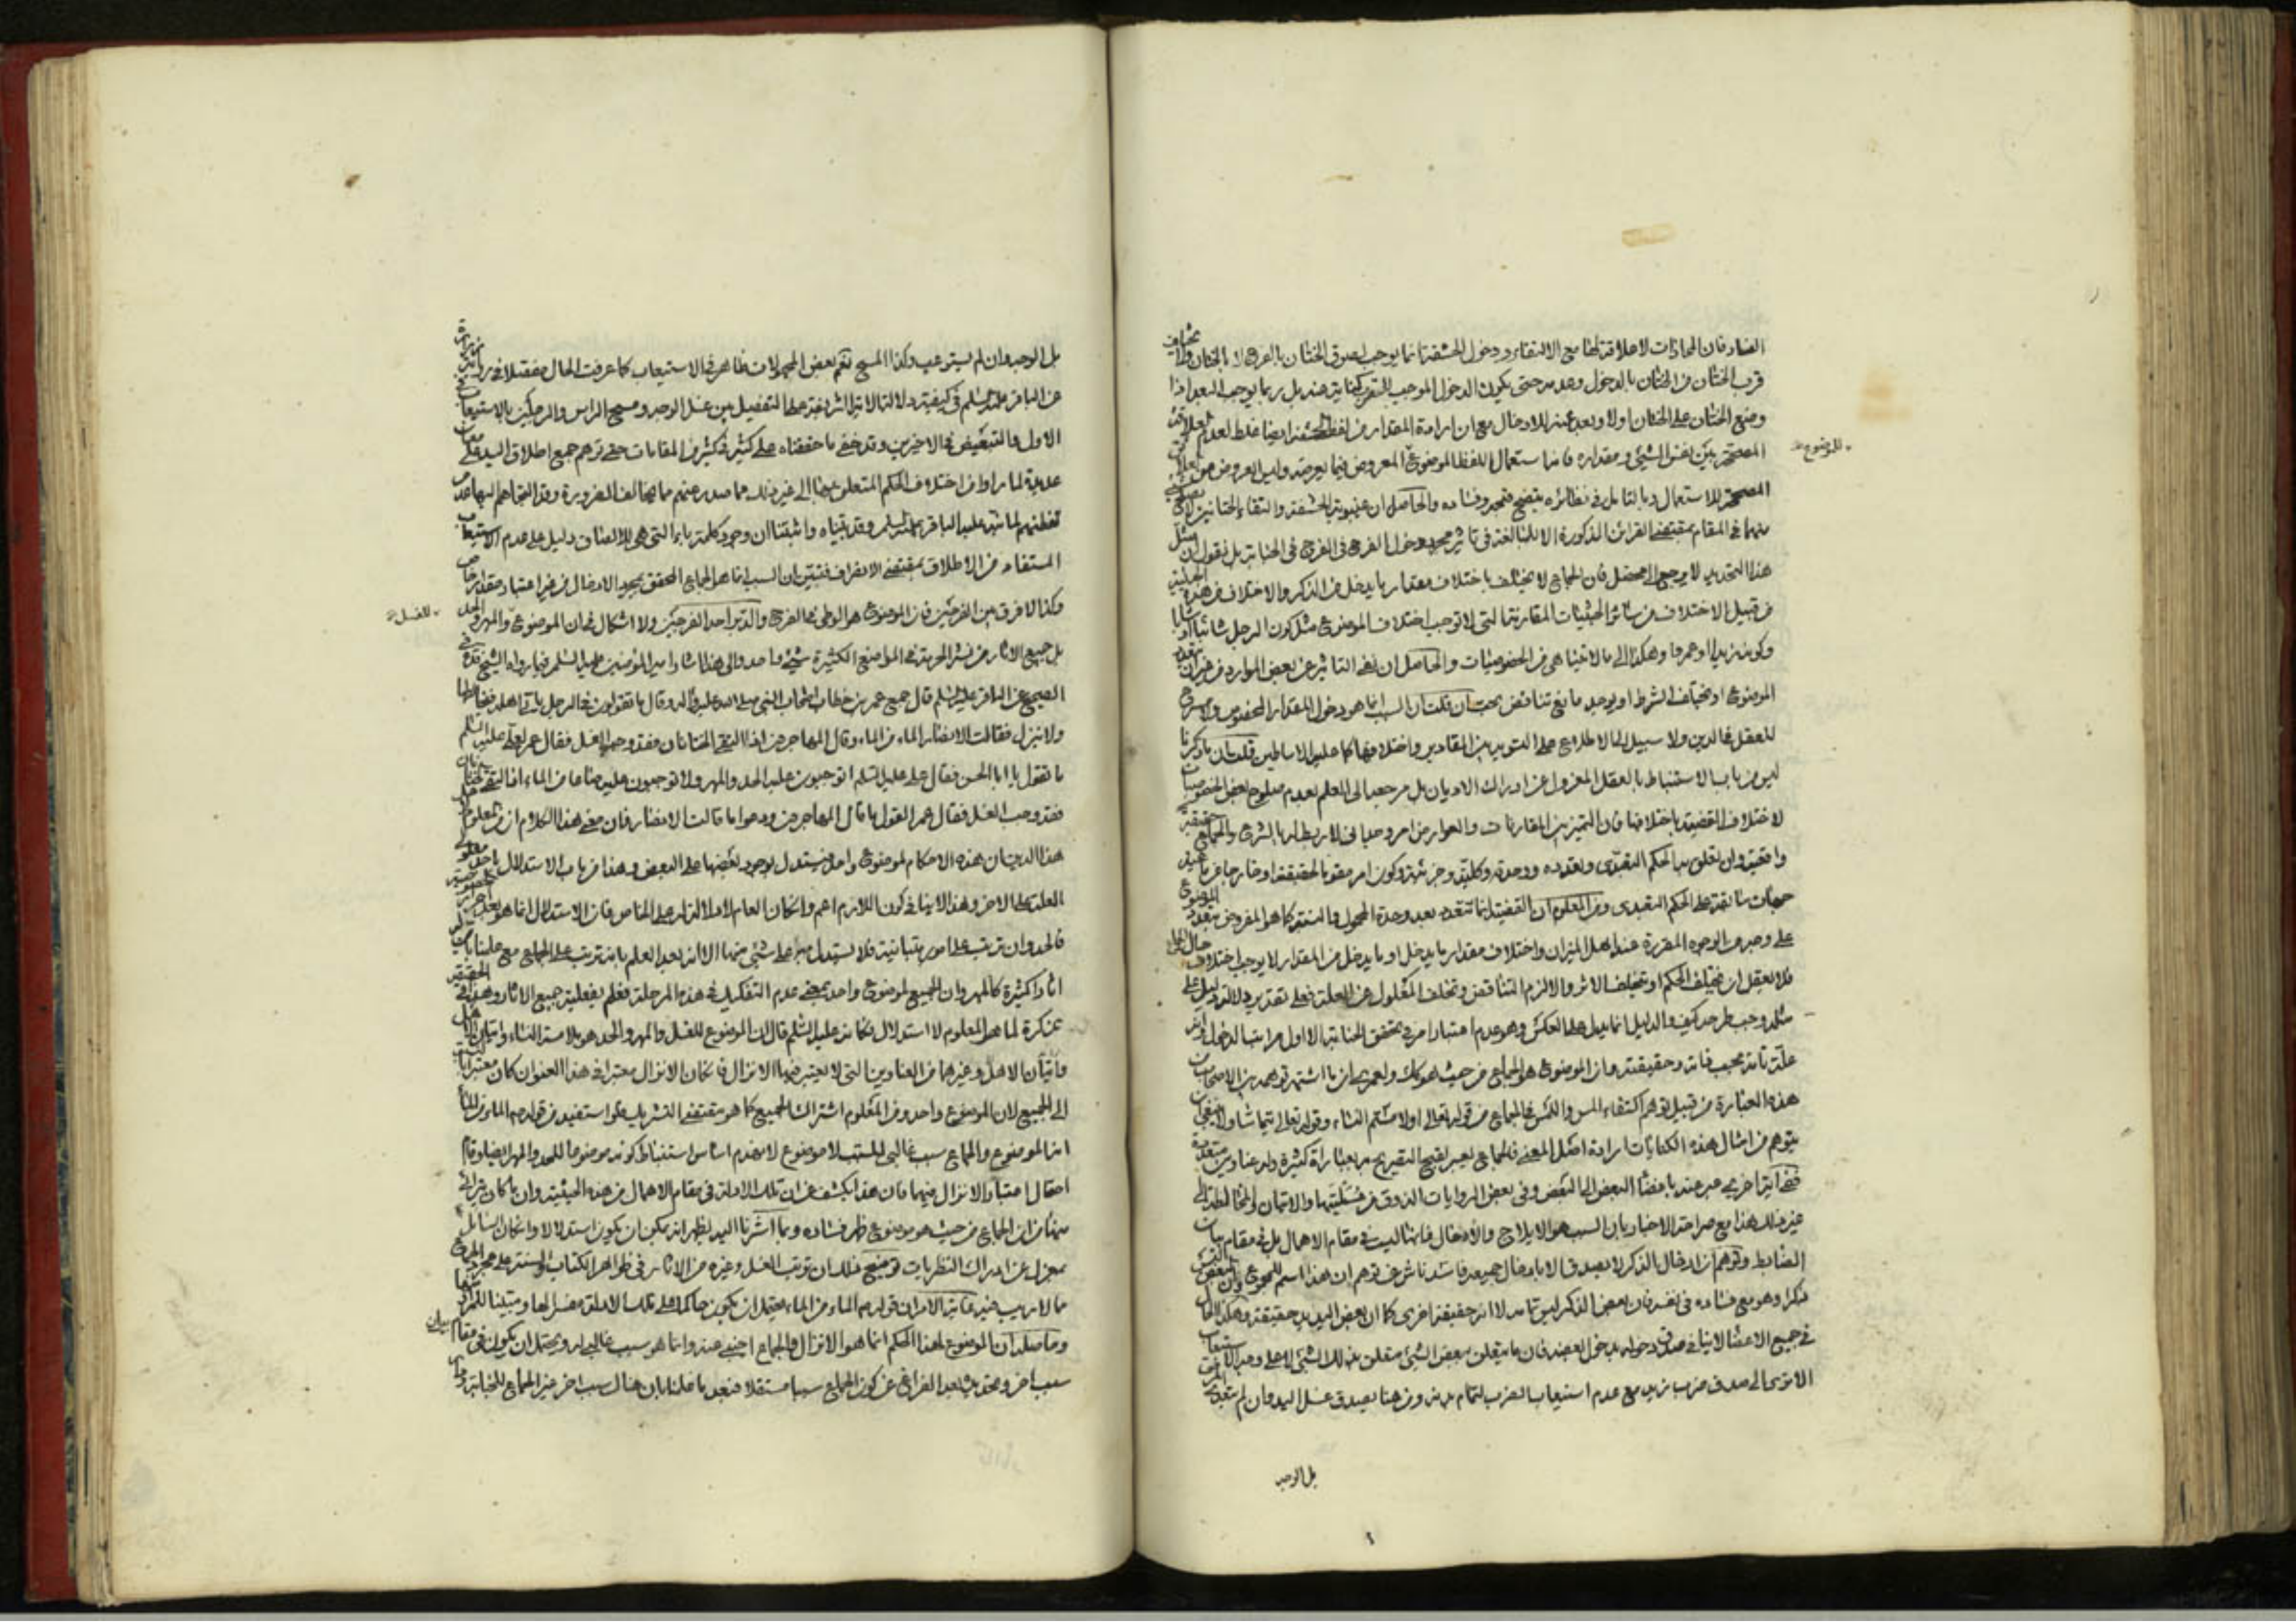 الضاد فان المحاذات لا علاقة لها مع الالتقاء ودخول الحشفة انما يوجب لصوق الختان بالفرج لا بالختان
قرب الختان من الختان بالدخول وحده حتى يكون الدخول الموجب للتقرب كناية عنه بل ربما يوجب البعد اذا
وضع الختان على الختان اولا وبعد عنه للادخال مع ان ارادة المقدار من لفظ الحشفة ايضا غلط لعدم العلاقة
المصححة بين نفس الشيء ومقداره فانما استعمال اللفظ الموضوع المعروض فيما يعرضه وليس العروض من
المصححة للاستعمال وبالتامل في نظائره يتضح قبحه وفساده والحاصل ان غيبوبة الحشفة والتقاء الختانين
منهما في المقام بمقتضى القرائن المذكورة الا المبالغة في تاثير مجرد دخول الفرج في الفرج في الجنابة بل نقول ان
هذا التحديد لا يرجع الى محصل فان الجماع لا يختلف باختلاف مقدار ما يدخل من الذكر والاختلاف من هذه
من قبيل الاختلاف من سائر الحيثيات المقارنة التي لا توجب اختلاف الموضوع مثل كون الرجل شائبا او
وكونه زيدا او عمرا وهكذا الى ما لا يتناهى من الخصوصيات والحاصل ان نفي التاثير عن بعض الموارد من غير ان
الموضوع او يختلف الشرط او يوجد مانع تناقض بحت فان قلت ان السبب انما هو دخول المقدار المخصوص ولا
للعقل في الدين ولا سبيل لنا الاطلاع على التوزيع بين المقادير واختلافها كما عليه الاساطين قلت ان ما ذكرنا
ليس من باب الاستنباط بالعقل المعزول عن ادراك الاديان بل مرجعه الى العلم بعدم صلوح بعض الخصوصيات
لاختلاف القضية باختلافها فان التميز بين المقارنات والعوارض امر وجداني لا ربط له بالشرع والجماع حقيقة
واقعية وان تعلق به الحكم التعبدي وتعدده ووحدته وكليته وجزئيته وكون امر مقوما لحقيقته او خارجا عن ماهيته
جهات سابقة على الحكم التعبدي ومن المعلوم ان القضية انما تتعدد بعد وحدة المحمول والنسبة كما هو المفروض بتعدد الموضوع
على وجه من الوجوه المقررة عند اهل الميزان واختلاف مقدار ما يدخل او ما يدخل من المقدار لا يوجب اختلاف
فلا يعقل ان يختلف الحكم او يتخلف الاثر والا لزم التناقض وتخلف المعلول عن العلة فعلى تقدير دلالة دليل على
مثله وجب طرحه كيف والدليل انما يدل على العكس وهو عدم اعتبار امر في تحقق الجنابة الا اول مراتب الدخول
علة تامة بحسب ذاته وحقيقته وان الموضوع هو الجماع من حيث هو كك ولعمري ان ما اشتهر توهمه بين الاصحاب من
هذه العبارة من قبيل توهم اكتفاء المس واللمس في الجماع من قوله تعالى او لامستم النساء وقوله تعالى يتماسا ولا ينبغي ان
يتوهم من امثال هذه الكنايات ارادة اصل المعنى فالجماع يعبر لقبح التصريح به بعبارات كثيرة وله عناوين متعددة
ففي آية اخرى عبر عنه بافضاء البعض الى البعض وفي بعض الروايات الذوق من عسيلتها والاتيان والمخالطة الى
غير ذلك هذا مع صراحة الاخبار بان السبب هو الايلاج والادخال فانها ليست في مقام الاهمال بل في مقام بيان
الضابط وتوهم ان ادخال الذكر لا يصدق الا بادخال جميعه فاسد ناش من توهم ان هذا اسم للمجموع وان البعض
ذكرا وهو مع فساده في نفسه فان بعض الذكر ليس تمامه لا انه حقيقة اخرى كما ان بعض اليد يد حقيقة وهكذا الحال
في جميع الاعضاء لا ينافي صدق دخوله بدخول البعض فان ما يتعلق ببعض الشيء متعلق بذلك الشيء لا على وجه الاستيعاب
الا ترى الى صدق ضرب زيد مع عدم استيعاب الضرب لتمام بدنه ومن هنا يصدق غسل اليد وان لم يتعد المرفق
للموضوع
بل الوجه
بل الوجه وان لم يستوعب وكذا المسح نعم بعض المحمولات ظاهر في الاستيعاب كما عرفت الحال مفصلا في رواية زرارة
عن الباقر عليه السلم في كيفية دلالة الاية الشريفة على التفصيل بين غسل الوجه ومسح الراس والرجلين بالاستيعاب في
الاول والتبعيض في الاخيرين وقد خفي ما حققناه على كثير في كثير من المقامات حتى توهم جمع اطلاق اليد على
عديدة لما راوا من اختلاف الحكم المتعلق بها الى غير ذلك مما صدر عنهم مما يخالف الضرورة وقد الجاهم اليها عدم
تفطنهم لما نبه عليه الباقر عليه السلم وقد بيناه واثبتنا ان وجود كلمة باء التي هي للالصاق دليل على عدم الاستيعاب
المستفاد من الاطلاق بمقتضى الانصراف فتبين ان السبب انما هو الجماع المحقق بمجرد الادخال من غير اعتبار مقدار خاص
وكذا لا فرق بين الفرجين فان الموضوع هو الوطي في الفرج والدبر احد الفرجين ولا اشكال في ان الموضوع والمهر والحد
للغسل
بل جميع الاثار من نشر الحرمة في المواضع الكثيرة شيء واحد والى هذا اشار امير المؤمنين عليه السلم فيما رواه الشيخ قده في
الصحيح عن الباقر عليه السلم قال جمع عمر بن خطاب اصحاب النبي صلى الله عليه واله وقال ما تقولون في الرجل ياتي اهله فيخالطها
ولا ينزل فقالت الانصار الماء من الماء وقال المهاجرون اذا التقى الختانان فقد وجب الغسل فقال عمر لعلي عليه السلم
ما تقول يا ابا الحسن فقال علي عليه السلم اتوجبون عليه الحد والمهر ولا توجبون عليه صاعا من الماء اذا التقى الختانان
فقد وجب الغسل فقال عمر القول ما قال المهاجرون ودعوا ما قالت الانصار فان معنى هذا الكلام ان من المعلوم
هذا الدين ان هذه الاحكام لموضوع واحد فيستدل بوجود بعضها على البعض وهذا من باب الاستدلال باحد معلولي
العلة على الاخر وهذا لا ينافي كون اللازم اعم وان كان العام لا دلالة له على الخاص فان الاستدلال انما هو
فالحد وان ترتب على امور متباينة فلا يستدل به على شيء منها الا انه بعد العلم بانه ترتب على الجماع مع علمنا بان
اثارا كثيرة كالمهر وان الجميع لموضوع واحد بمعنى عدم التفكيك في هذه المرحلة فعلم بفعلية جميع الاثار وهذا في الحقيقة
تذكرة لما هو المعلوم لا استدلال فكانه عليه السلم قال ان الموضوع للغسل والمهر والحد هو ملامسة النساء
واتيان الاهل وغيرها من العناوين التي لا يعتبر فيها الانزال فان كان الانزال معتبرا في هذا العنوان كان معتبرا بالنسبة
الى الجميع لان الموضوع واحد ومن المعلوم اشتراك الجميع كما هو مقتضى التشريك فلو استفيد من قولهم الماء من الماء
انه الموضوع والجماع سبب غالبي للسبب لا موضوع لانهدم اساس استنباط كونه موضوعا للحد والمهر ايضا وقام
احتمال اعتبار الانزال فيهما فان هذا يكشف عن ان تلك الادلة في مقام الاهمال من هذه الحيثية وان ما كان يترائى
منها من ان الجماع من حيث هو موضوع ظهر فساده وبما اشرنا اليه يظهر انه يمكن ان يكون استدلالا وان كان السائل
بمعزل عن ادراك النظريات توضيح ذلك ان ترتب الغسل وغيره من الاثار في ظواهر الكتاب والسنة على مجرد الجماع
مما لا ريب فيه غاية الامر ان قولهم الماء من الماء يحتمل ان يكون حاكما على تلك الادلة مفسرا لها ومبينا للمراد منها
وحاصله ان الموضوع لهذا الحكم انما هو الانزال والجماع اجنبي عنه وانما هو سبب غالبي له ويحتمل ان يكون في مقام بيان
سبب اخر وتحديده بعد الفراغ عن كون الجماع سببا مستقلا فبعد ما علمنا بان هناك سبب اخر غير الجماع للجنابة